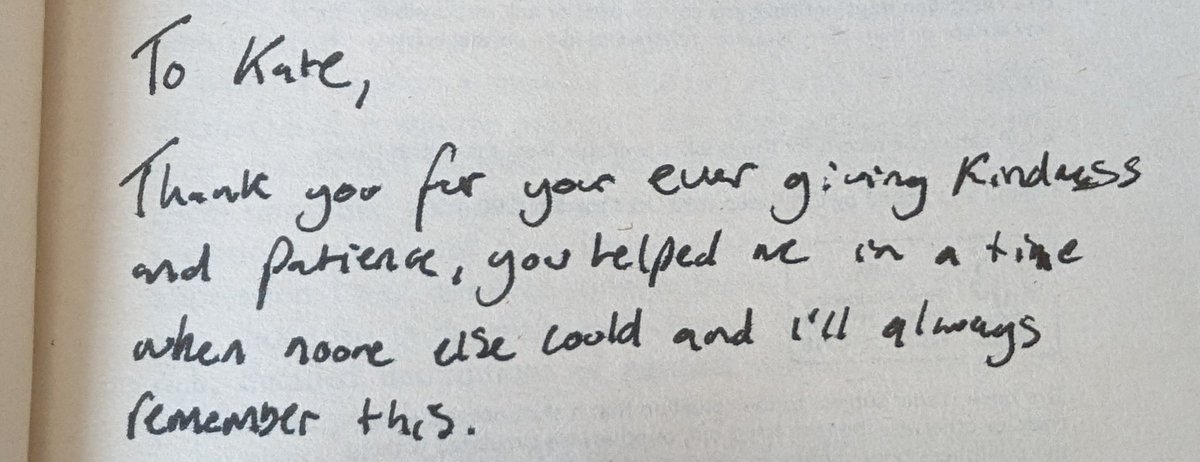 To Kate,
Thank you for your ever giving Kindness
and patience, you helped me in a time
when noone else could and i'll always
remember this.